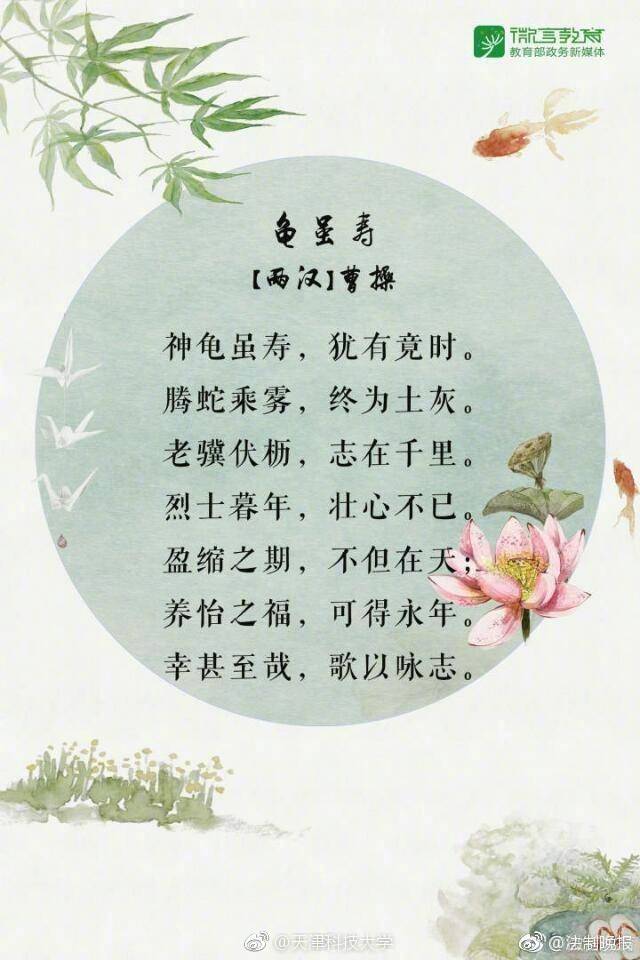 微言教育
教育部政务新媒体
龟虽寿
【两汉】曹操
神龟虽寿，犹有竟时。
腾蛇乘雾，终为土灰。
老骥伏枥，志在千里。
烈士暮年，壮心不已。
盈缩之期，不但在天；
养怡之福，可得永年。
幸甚至哉，歌以咏志。
@天津科技大学
@法制晚报